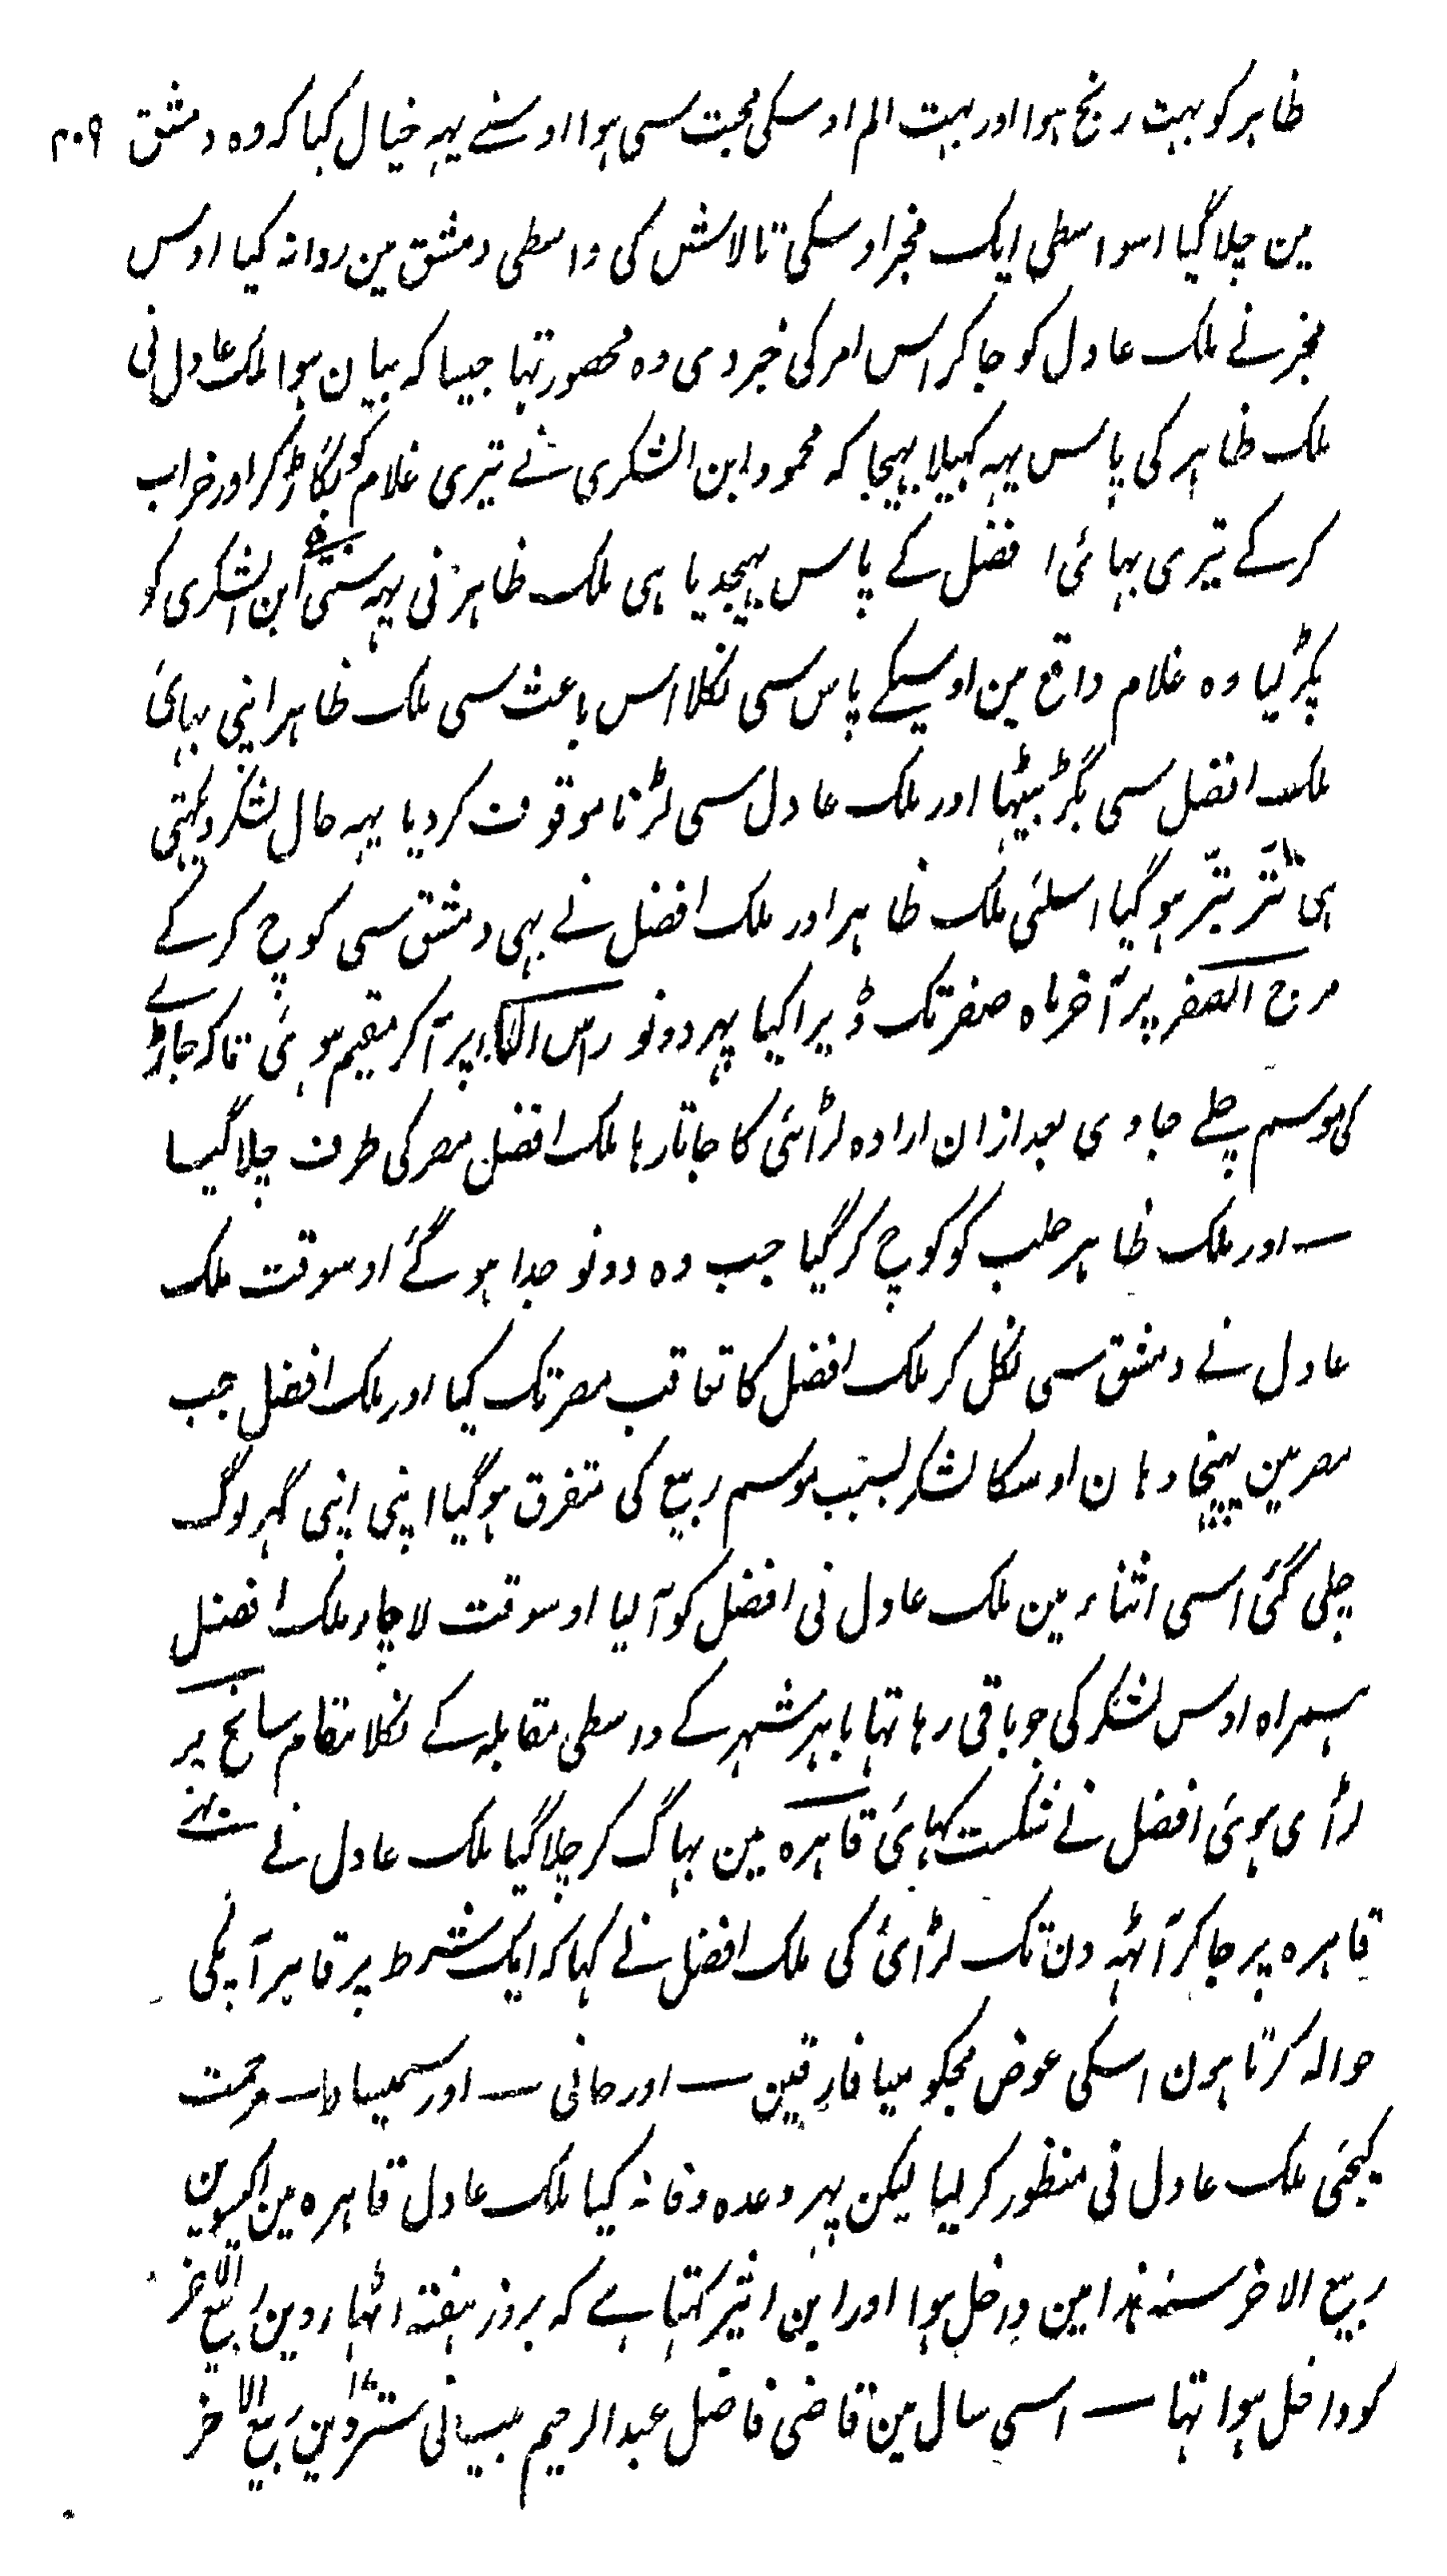 ظاہر کو بہت رنج ہوا اور بہت الم اوسکی محبت سی ہوا اوسنے یہہ خیال کیا کہ وہ دمشق ۴۰۹
مین چلا گیا اسواسطی ایک مخبر اوسکی تالاش کی واسطی دمشق مین روانہ کیا اوس
مخبر نے ملک عادل کو جا کر اس امر کی خبر دی وہ محصور تہا جیسا کہ بیان ہوا ملک عادل نی
ملک ظاہر کی پاس یہہ کہیلا بہیجا کہ محمود ابن الشکری نے تیری غلام کو بگاڑ کر اور خراب
کرکے تیری بہائی افضل کے پاس بہیجدیا ہی ملک ظاہر نی یہہ سنتی ہے ابن الشکری کو
پکڑ لیا وہ غلام واقع مین اوسیکے پاس سی نکلا اس باعث سی ملک ظاہر اپنی بہائی
ملک افضل سی بگڑ بیٹہا اور ملک عادل سی لڑنا موقوف کردیا یہہ حال لشکر دیکہتی
ہی تتر بتر ہو گیا اسلئی ملک ظاہر اور ملک افضل نے بہی دمشق سی کوچ کرکے
مرج الصفر پر آخر ماہ صفر تک ڈیرا کیا پہر دونو راس الماء پر آکر مقیم ہوئی تاکہ جاڑے
کی موسم چلے جاوی بعد ازان ارادہ لڑائی کا جاتا رہا ملک افضل مصر کی طرف چلا گیا
اور ملک ظاہر حلب کو کوچ کر گیا جب وہ دونو جدا ہو گئے اوسوقت ملک
عادل نے دمشق سی نکل کر ملک افضل کا تعاقب مصر تک کیا اور ملک افضل جب
مصر مین پہنچا وہان اوسکا لشکر بسبب موسم ربیع کی متفرق ہو گیا اپنی اپنی گہر لوگ
چلی گئی اسی اثناء مین ملک عادل نی افضل کو آلیا اوسوقت لاچار ملک افضل
ہمراہ اوس لشکر کی جو باقی رہا تہا باہر شہر کے واسطی مقابلہ کے نکلا مقام سانح پر
لڑائی ہوئی افضل نے شکست کہائی قاہرہ مین بہاگ کر چلا گیا ملک عادل نے
قاہرہ پر جا کر آٹہہ دن تک لڑائی کی ملک افضل نے کہا کہ ایک شرط پر قاہر آپکی
حوالہ کرتا ہون اسکی عوض مجکو میافارقین اور حانی اور سمیساط مرحمت
کیجئی ملک عادل نی منظور کر لیا لیکن پہر وعدہ وفا نہ کیا ملک عادل قاہرہ مین اکیسوین
ربیع الاخر سنہ ہذا مین داخل ہوا اور ابن اثیر کہتا ہے کہ بروز ہفتہ اٹہاروین ربیع الاخر
کو داخل ہوا تہا اسی سال مین قاضی فاضل عبدالرحیم بیسانی سترہوین ۱۷ ربیع الاخر